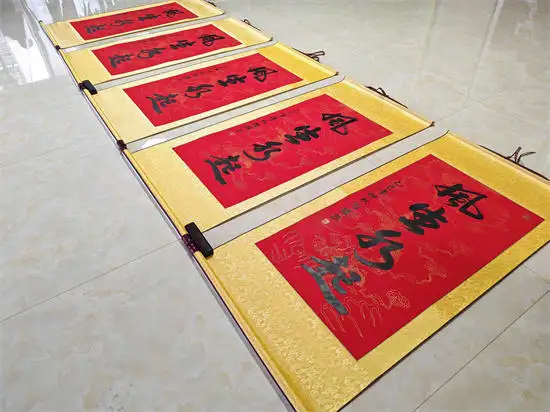 風生水起
風生水起
風生水起
風生水起
風生水起